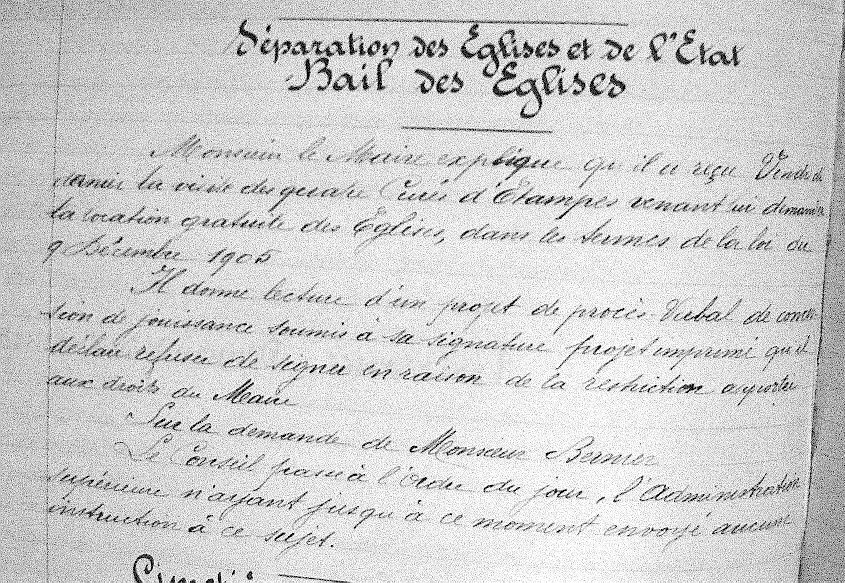 Séparation des Eglises et de l'Etat
Bail des Eglises
Monsieur le Maire explique qu'il a reçu Vendredi
dernier la visite des quatre Curés d'Etampes venant lui demander
la location gratuite des Eglises, dans les termes de la loi du
9 Décembre 1905
Il donne lecture d'un projet de procès-Verbal de conces
sion de jouissance soumis à sa signature projet imprimé qu'il
déclare refuser de signer en raison de la restriction apportée
aux droits du Maire
Sur la demande de Monsieur Bernier
Le Conseil passe à l'ordre du jour, l'Administration
supérieure n'ayant jusqu'à ce moment envoyé aucune
instruction à ce sujet.